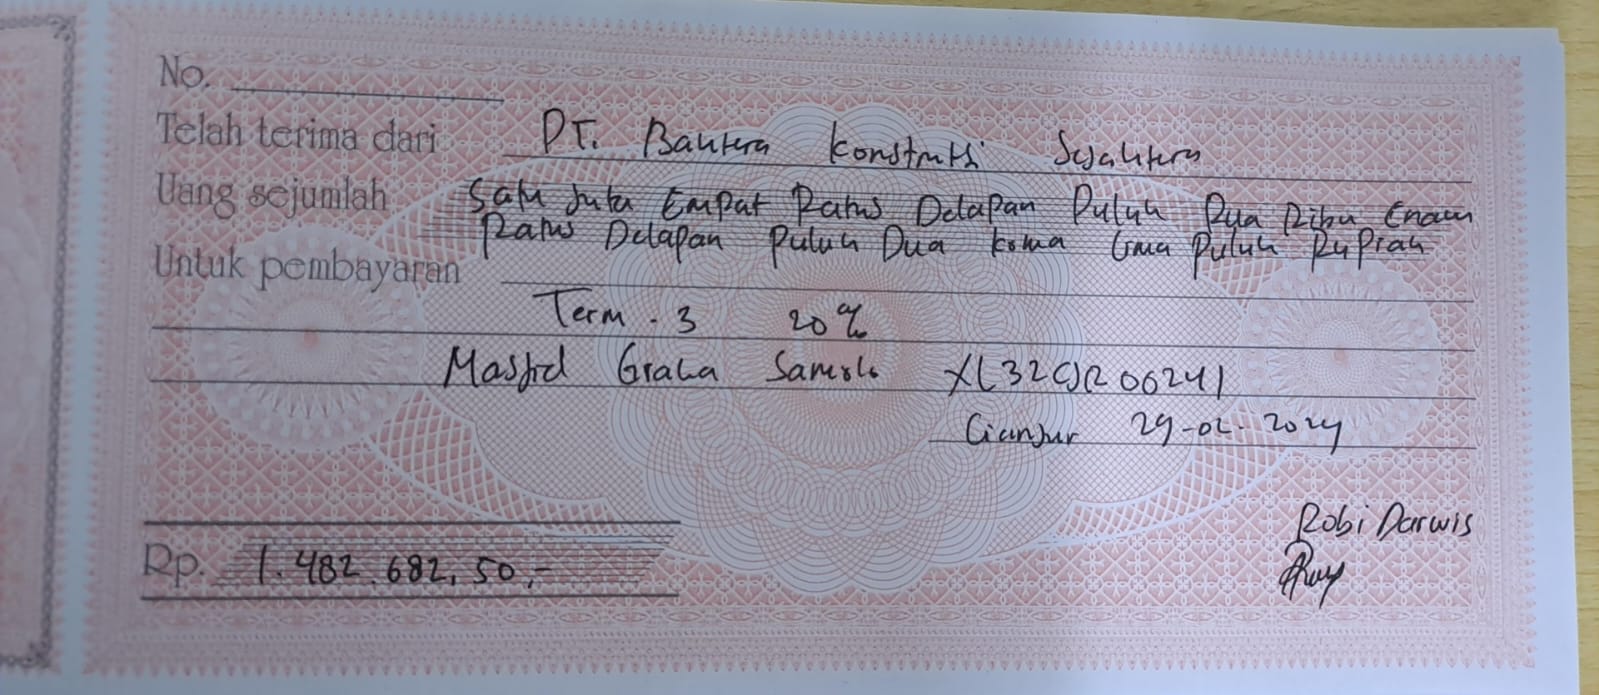 No.
Telah terima dari PT. Bahtera Konstruksi Sejahtera
Uang sejumlah Satu Juta Empat Ratus Delapan Puluh Dua Ribu Enam
Ratus Delapan Puluh Dua koma Lima Puluh Rupiah
Untuk pembayaran
Term . 3 20%
Masjid Graha
Cianjur 29-02-2024
Robi Darwis
Rp. 1.482.682,50,-